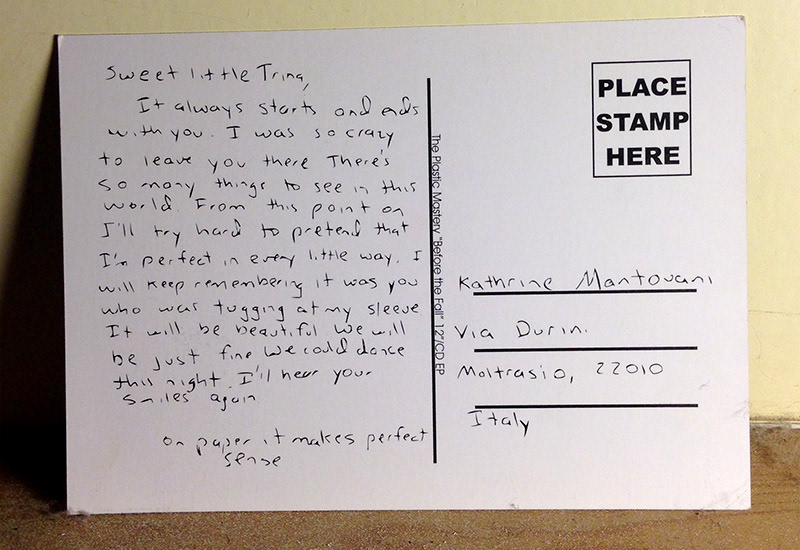 Sweet little Trina,
It always starts and ends
with you. I was so crazy
to leave you there There's
so many things to see in this
world. From this point on
I'll try hard to pretend that
I'm perfect in every little way. I
will keep remembering it was you
who was tugging at my sleeve
It will be beautiful We will
be just fine We could dance
this night. I'll hear your
smiles again
on paper it makes perfect
sense
The Plastic Mastery "Before the Fall" 12"/CD EP
PLACE
STAMP
HERE
Kathrine Mantovani
Via Durini
Moltrasio, 22010
Italy